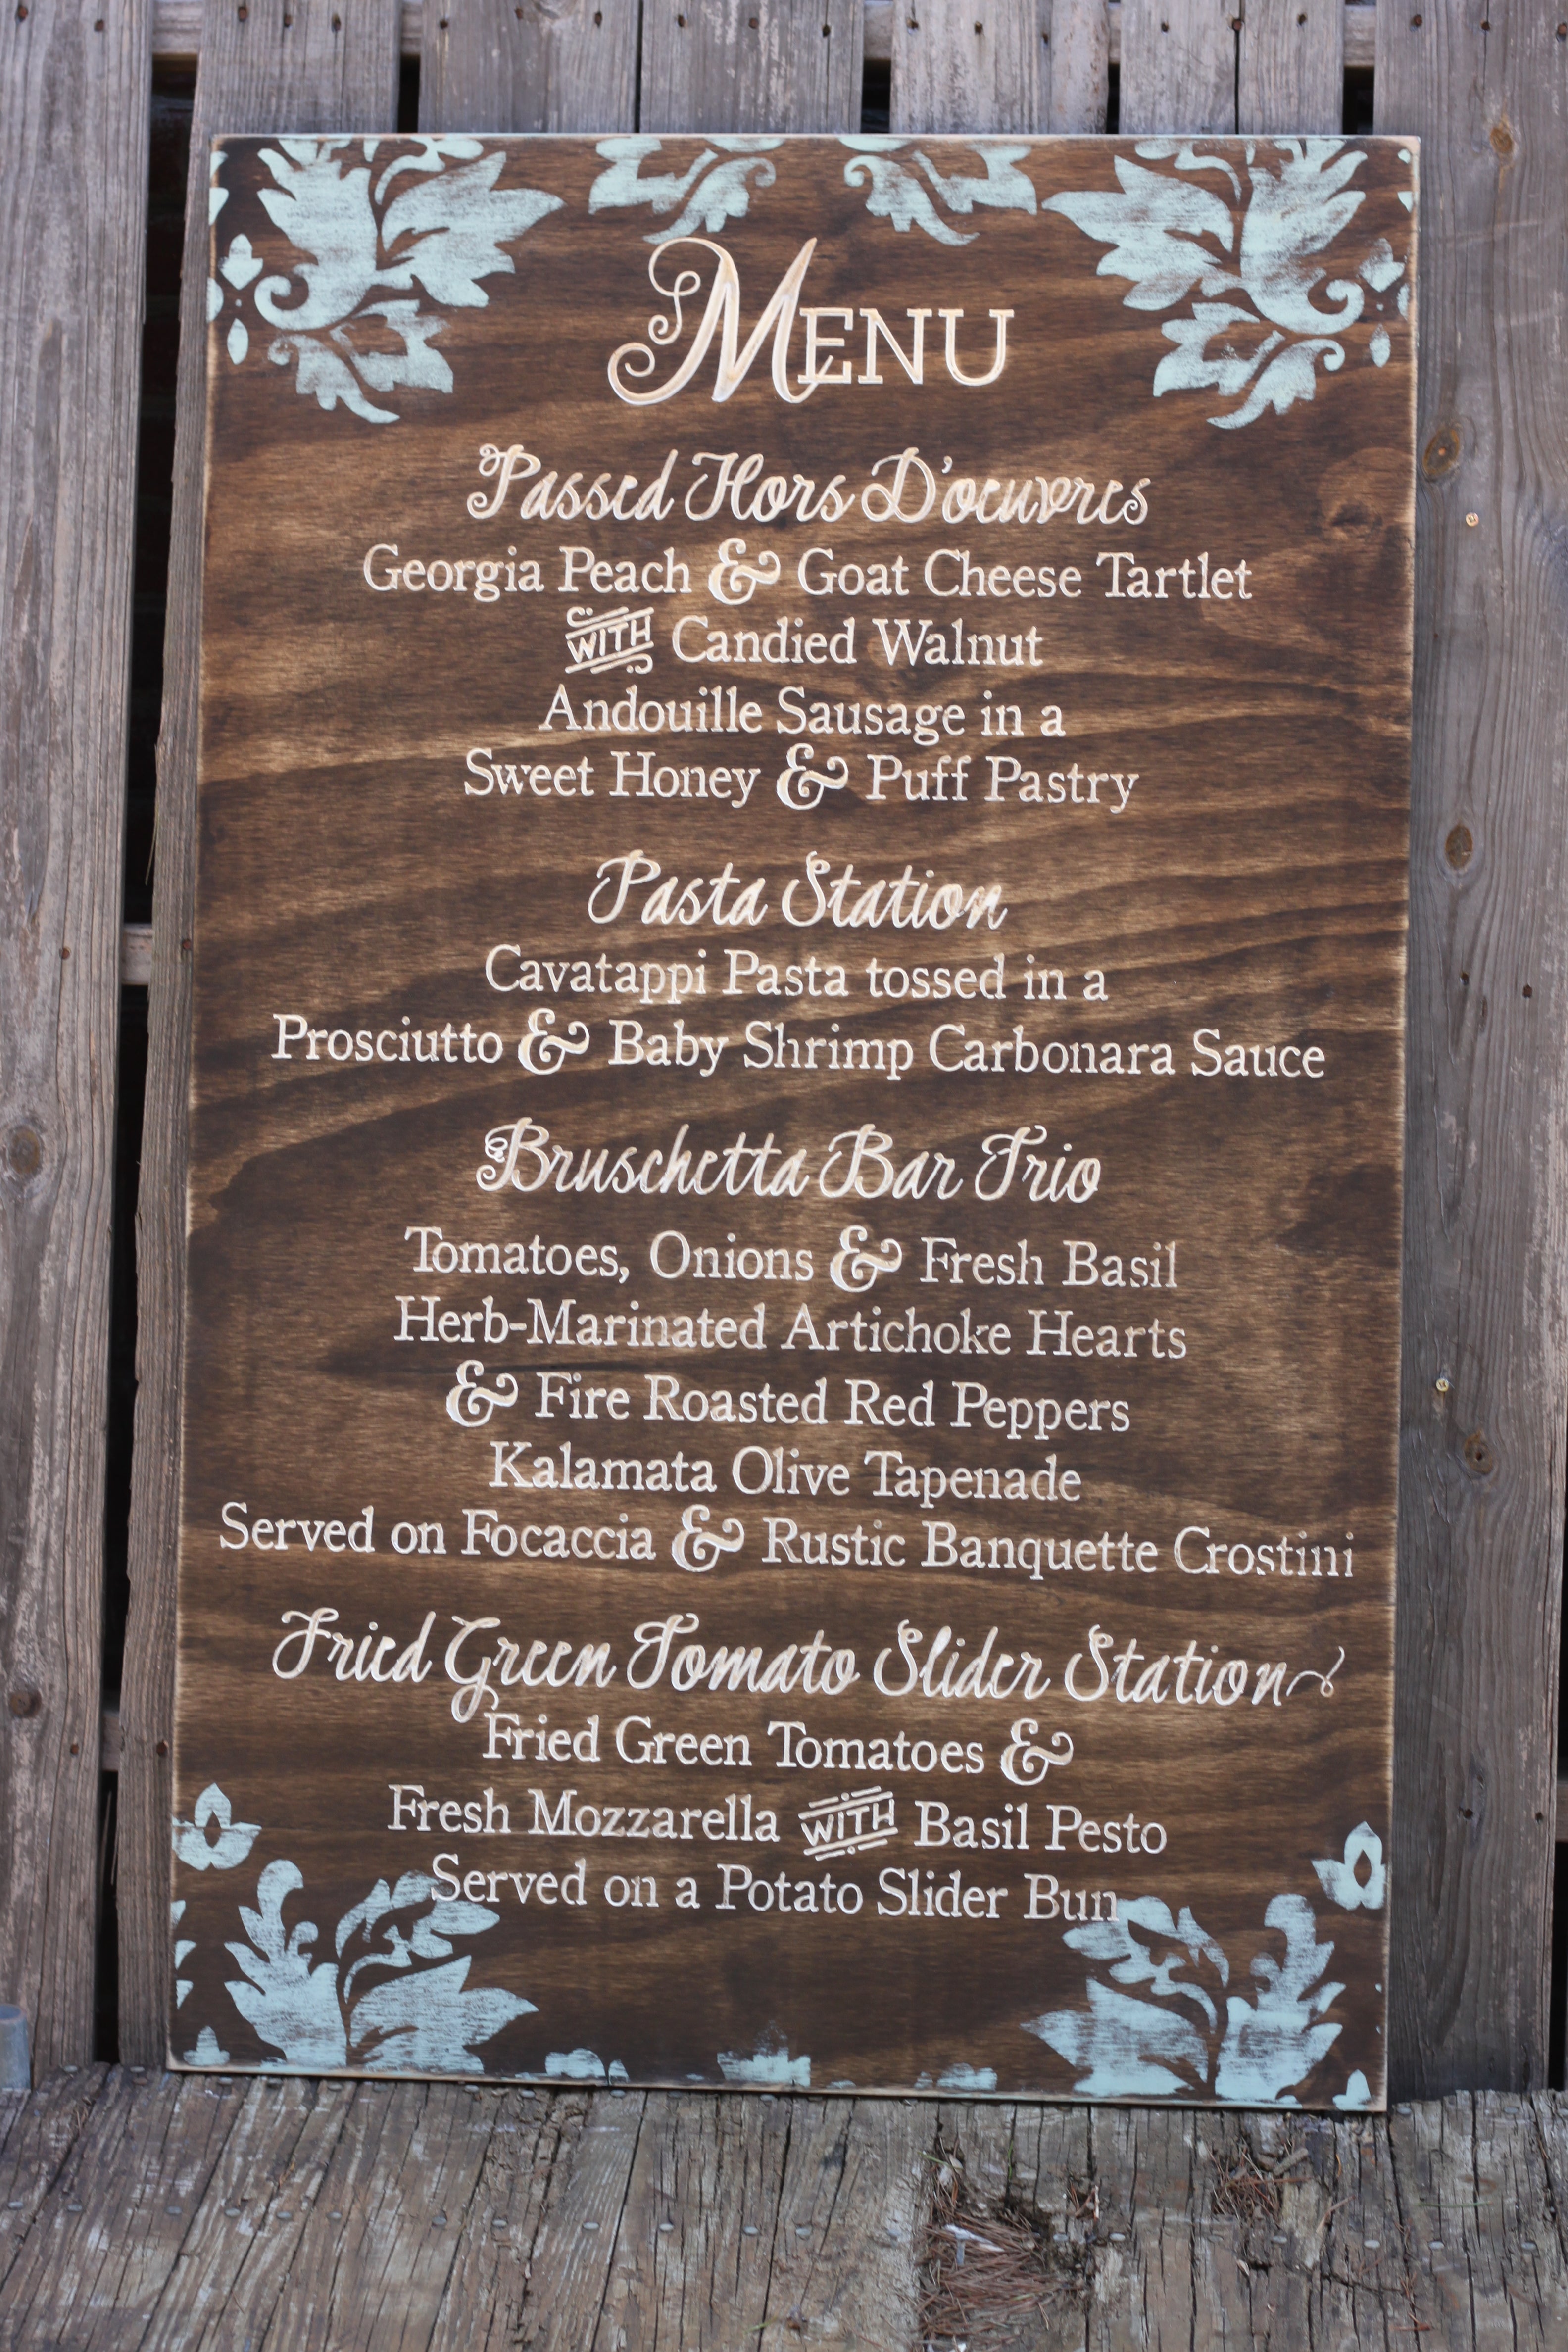 MENU
Passed Hors D'oeuvres
Georgia Peach & Goat Cheese Tartlet
WITH Candied Walnut
Andouille Sausage in a
Sweet Honey & Puff Pastry
Pasta Station
Cavatappi Pasta tossed in a
Prosciutto & Baby Shrimp Carbonara Sauce
Bruschetta Bar Trio
Tomatoes, Onions & Fresh Basil
Herb-Marinated Artichoke Hearts
& Fire Roasted Red Peppers
Kalamata Olive Tapenade
Served on Focaccia & Rustic Banquette Crostini
Fried Green Tomato Slider Station
Fried Green Tomatoes &
Fresh Mozzarella WITH Basil Pesto
Served on a Potato Slider Bun